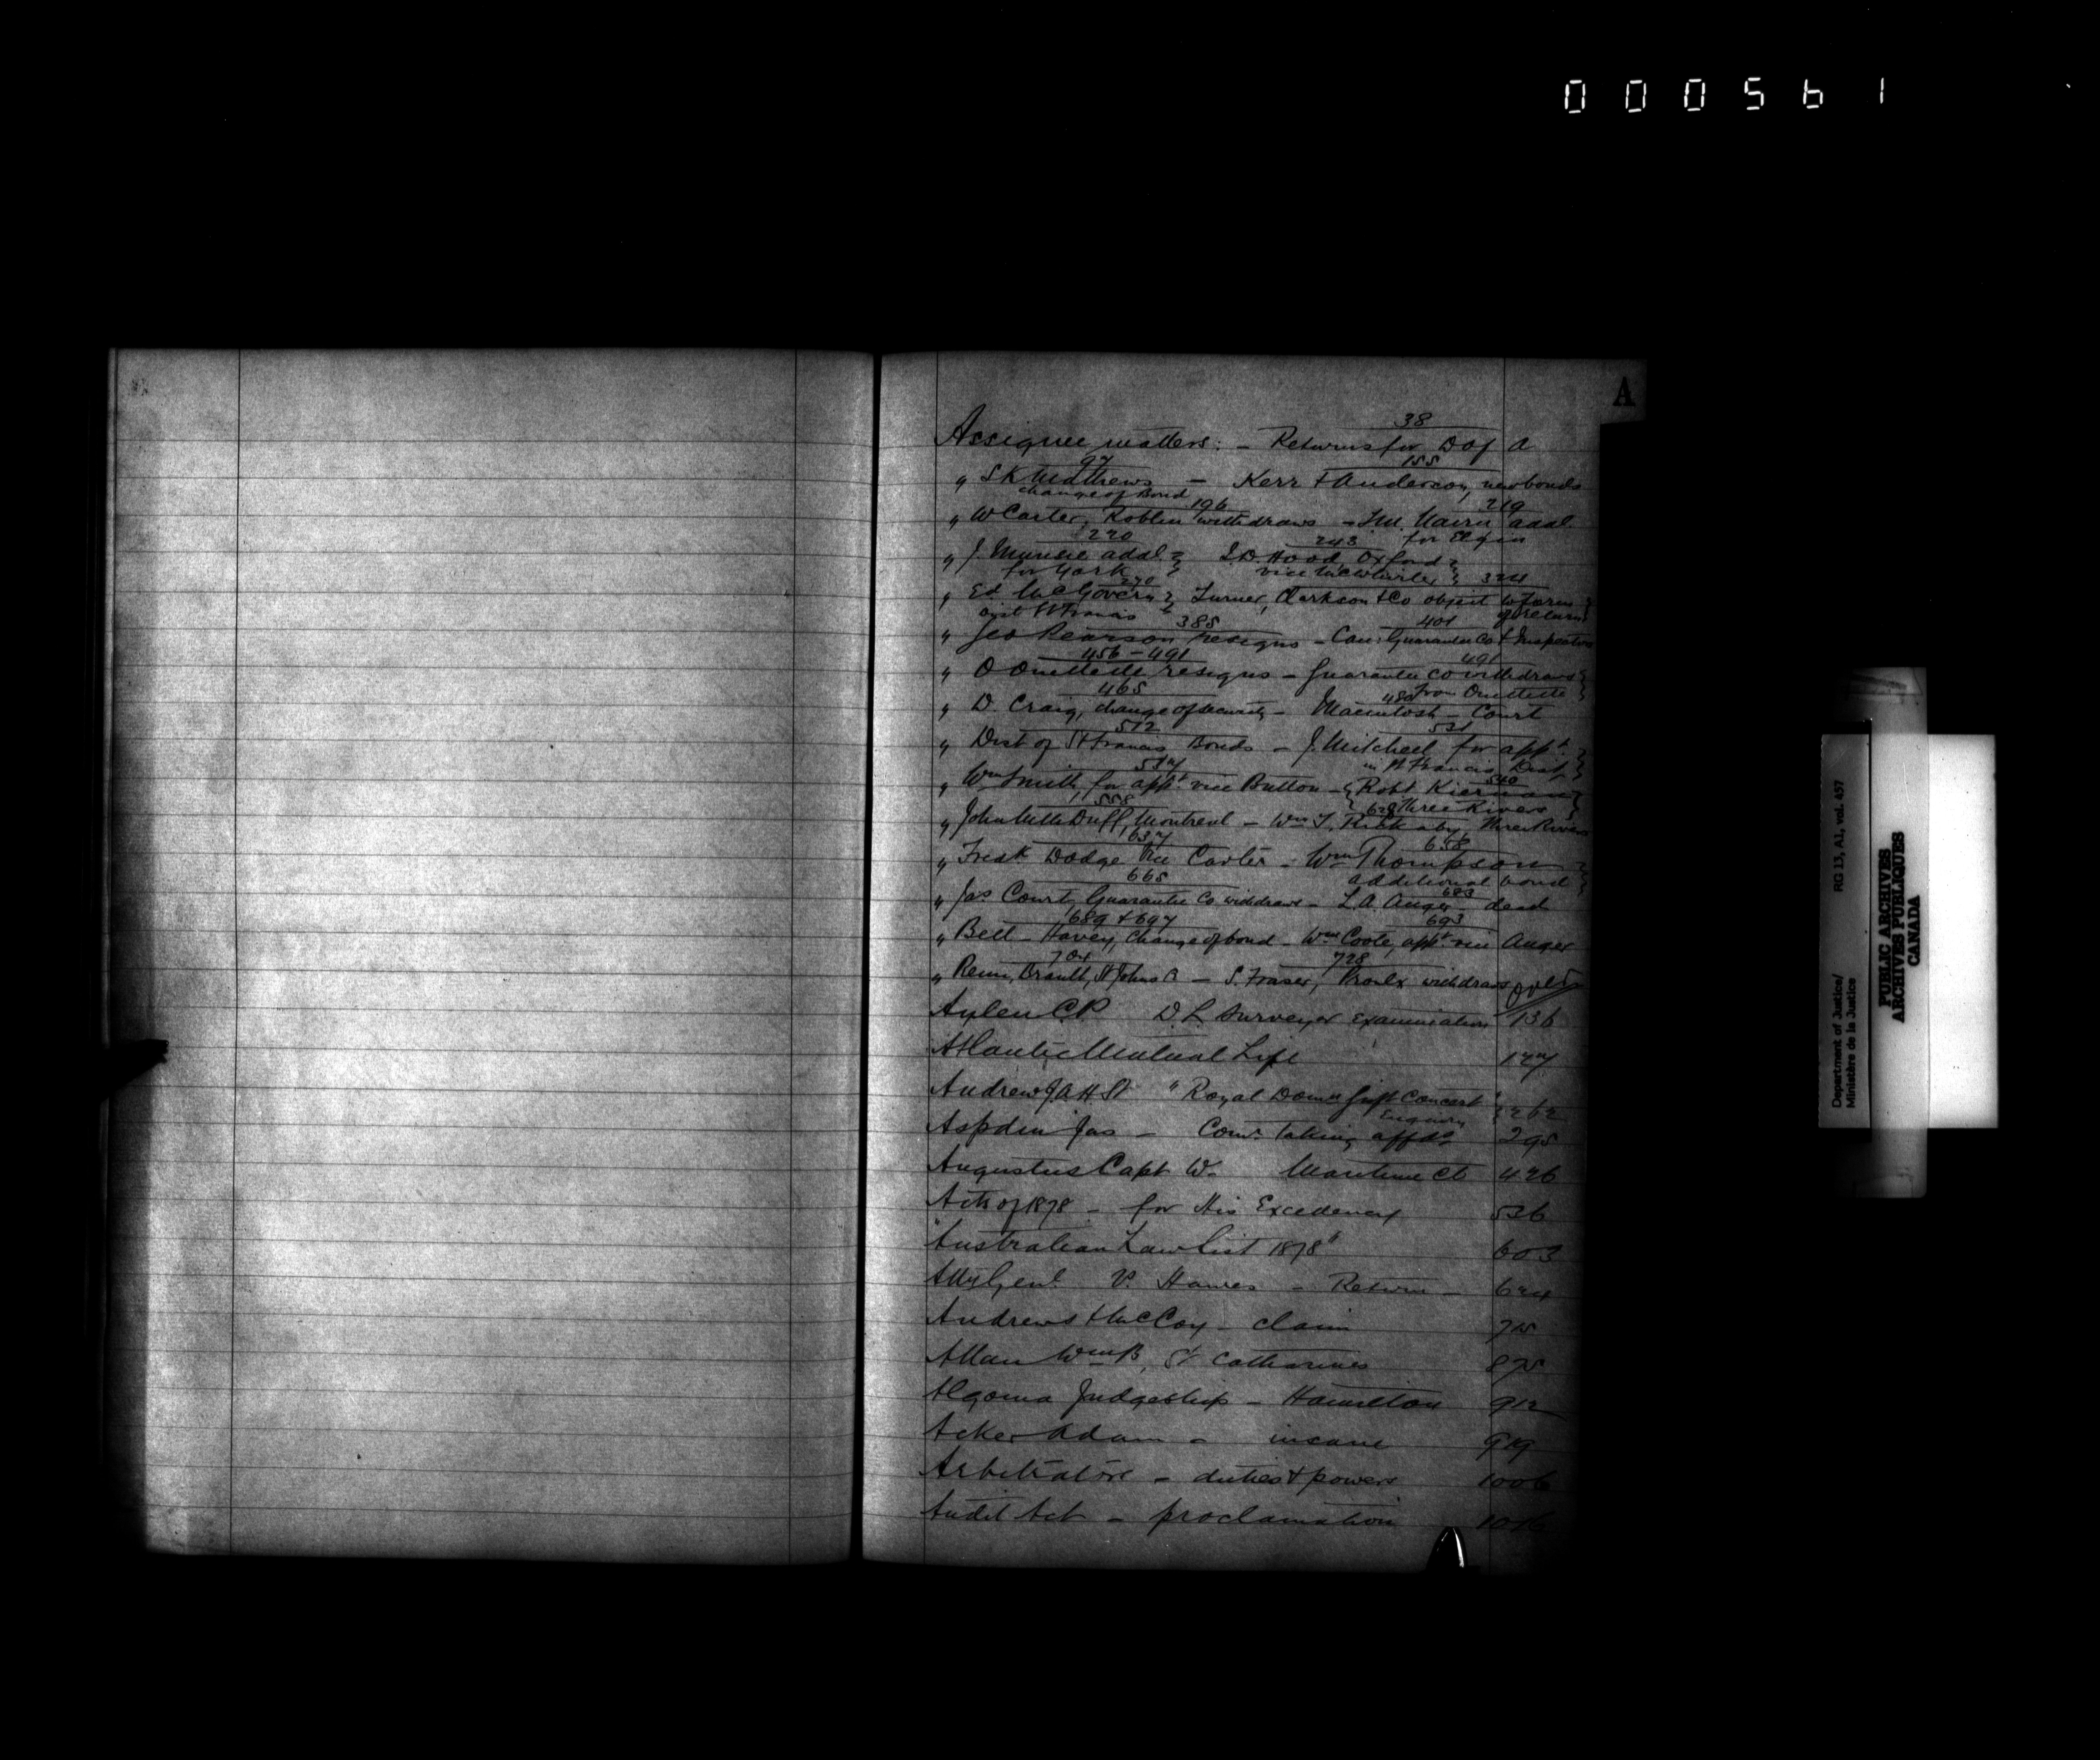 000561
A
38
Assignee matters: - Returns for D of A
97 155
" S K Matthews - Kerr & Anderson, new bonds
change of Bond 196 219
" W Carter, Roblin withdraws - Jno. Nairn addl.
for Elgin
220 243
" J. addl. } J.D. Hood Oxford }
for York } vice McWhirter } 324
270
" Ed McGovern } Turner, Clarkson & Co object to form }
dist St Francis } of return }
385 401
" Geo Pearson resigns - Can: Guarantee Co & Inspector
456 - 491 491
" O Ouellette resigns - Guarantee Co withdraws }
from Ouellette }
465 480
" D. Craig, change of security - Macintosh Court
512 531
" Dist of St Francis Bonds - J. Mitchell for appt. }
in St Francis Dist }
517
" Wm Smith, for appt. vice Button - { Robt Kiernan }
540
{ Three Rivers }
558 628
" John McDuff, Montreal - Wm T. Three Rivers
637 658
" Fredk Dodge vice Carter - Wm Thompson }
additional bond }
665 683
" Jas Court, Guarantee Co withdraws - L.A. Auger - dead
689 & 697 693
" Bell - Harvey, change of bond - Wm Coote, appt. vice Auger
704 728
" St Johns - S. Fraser, Proulx withdraws over
Aylen C.P. D L Surveyor Examination 136
Atlantic Mutual Life 177
Andrew J.A.H St "Royal Domn Gift Concert" } 262
Enquiry
Aspden Jas - Comr. taking affds 295
Augustus Capt W. Maritime Ct 426
Acts of 1878 - for His Excellency 536
"Australian Law List 1878" 603
Atty Genl. V. Hawes - Return - 644
Andrews & McCoy - claim 715
Allan Wm B, St Catharines 875
Algoma Judgeship - Hamilton 912
Acker Adam - insane 919
Arbitrators - duties & powers 1006
Audit Act - proclamation
Department of Justice/
Ministère de la Justice
RG 13, A1, vol. 457
PUBLIC ARCHIVES
ARCHIVES PUBLIQUES
CANADA